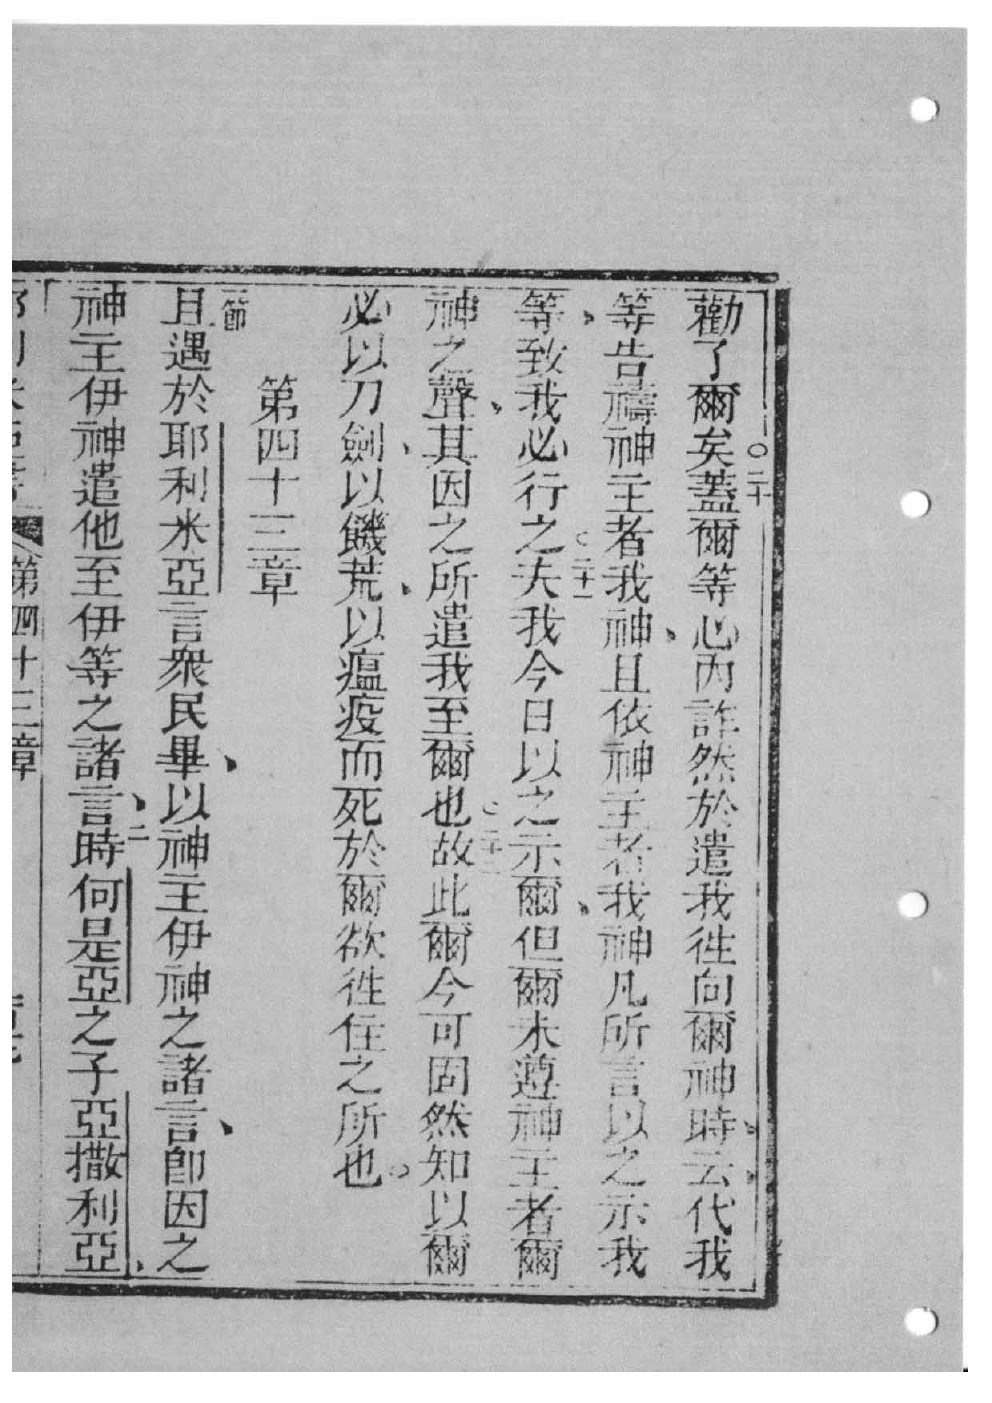 勸了爾矣蓋爾等必內詐然於遣我徃向爾神時云代我
○二十
等告禱神主者我神且依神主者我神凡所言以之示我
等致我必行之夫我今日以之示爾但爾未遵神主者爾
二十一
神之聲其因之所遣我至爾也故此爾今可固然知以爾
二十二
必以刀劍以饑荒以瘟疫而死於爾欲徃住之所也
第四十三章
一節
且遇於耶利米亞言衆民畢以神主伊神之諸言卽因之
神主伊神遣他至伊等之諸言時何是亞之子亞撒利亞
二
第四十三章